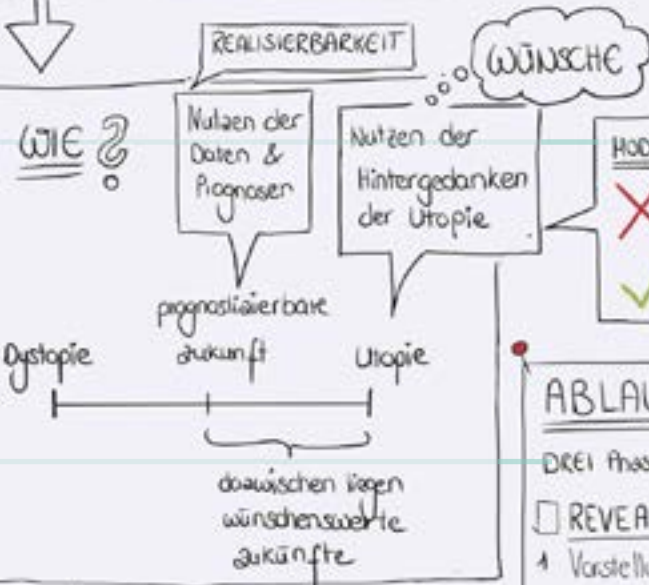 REALISIERBARKEIT
WÜNSCHE
WIE?
Nutzen der
Daten &
Prognosen
Nutzen der
Hintergedanken
der Utopie
prognostizierbare
zukunft
Dystopie
Utopie
dazwischen liegen
wünschenswerte
zukünfte
HOD
ABLAU
DREI Phas
REVEA
1 Vorstellu